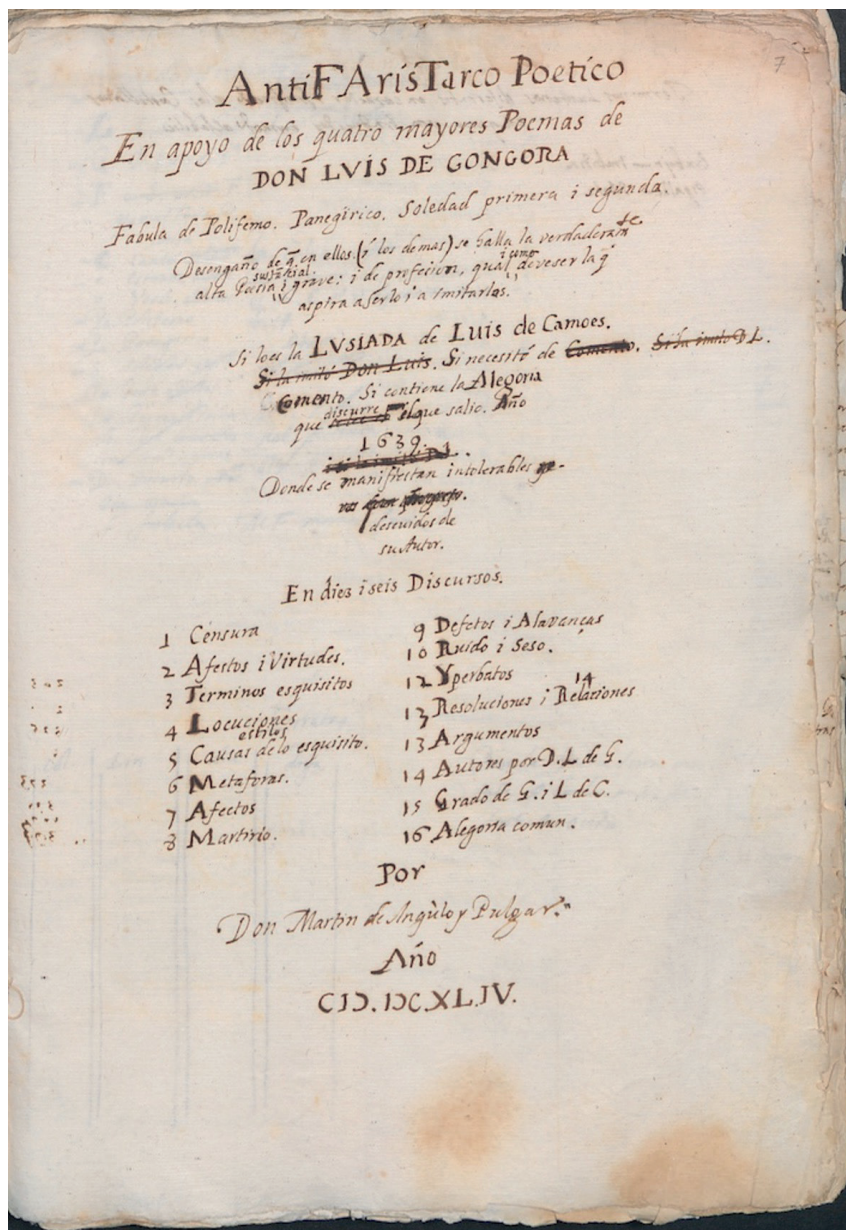 7
AntiFArisTarco Poetico
En apoyo de los quatro mayores Poemas de
DON LVIS DE GONGORA
Fabula de Polifemo. Panegirico. Soledad primera i segunda.
Desengaño de q̃ en ellos (i los demas) se halla la verdadera
alta Poesia sustãcial i grave: i de profecion, qual deve ser la q̃
aspira a serlo i a imitarlos.
Si lo es la LVSIADA de Luis de Camoes.
Si la imitó Don Luis. Si necesitó de Comento. Si la imitó D. L.
Comento. Si contiene la Alegoria
que discurre el que salio. Año
1639.
i si la imitó D. L.
Donde se manifiestan intolerables
descuidos de
su Autor.
En diez i seis Discursos.
1 Censura
2 Afectos i Virtudes.
3 Terminos esquisitos
4 Locuciones
estilos
5 Causas de lo esquisito.
6 Metaforas.
7 Afectos
8 Martirio.
9 Defetos i Alavanças
10 Ruido i Seso.
12 Yperbatos
13 Resoluciones i 14 Relaciones
13 Argumentos
14 Autores por D. L de G.
15 Grado de G. i L de C.
16 Alegoria comun.
Por
Don Martin de Angùlo y Pulgar.
Año
CIↃ.IↃC.XL.IV.